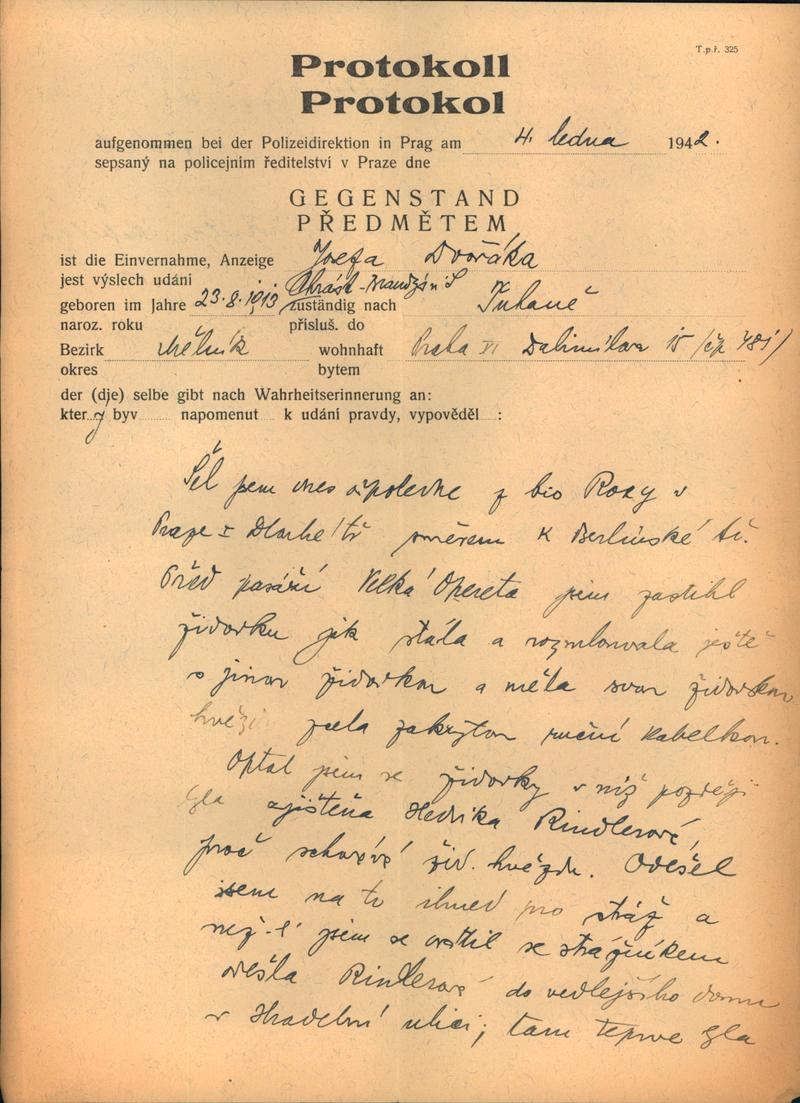 T.p.ř. 325
Protokoll
Protokol
aufgenommen bei der Polizeidirektion in Prag am 4. ledna 1942.
sepsaný na policejním ředitelství v Praze dne
GEGENSTAND
PŘEDMĚTEM
ist die Einvernahme, Anzeige Josefa Dvořáka
jest výslech udání Chrást
geboren im Jahre 23.8.1913 zuständig nach Tuhaně
naroz. roku přísluš. do
Bezirk Mělník wohnhaft Praha VI Dalimilova 15 /čp 481/
okres bytem
der (die) selbe gibt nach Wahrheitserinnerung an:
který byv napomenut k udání pravdy, vypověděl :
Šel jsem dnes odpoledne z bio Roxy v
Praze I Dlouhé tř směrem k Berlínské tř.
Před pasáží Velká Opereta jsem zastihl
židovku jak stála a rozmlouvala ještě
s jinou židovkou a měla svou židovskou
hvězdu zcela zakrytou ruční kabelkou.
Optal jsem se židovky v níž později
byla zjištěna Hedvika Rindlerová,
proč schovává žid. hvězdu. Odešel
jsem na to ihned pro stráž a
než-li jsem se vrátil se strážníkem
vešla Rindlerová do vedlejšího domu
v Hradební ulici; tam teprve byla